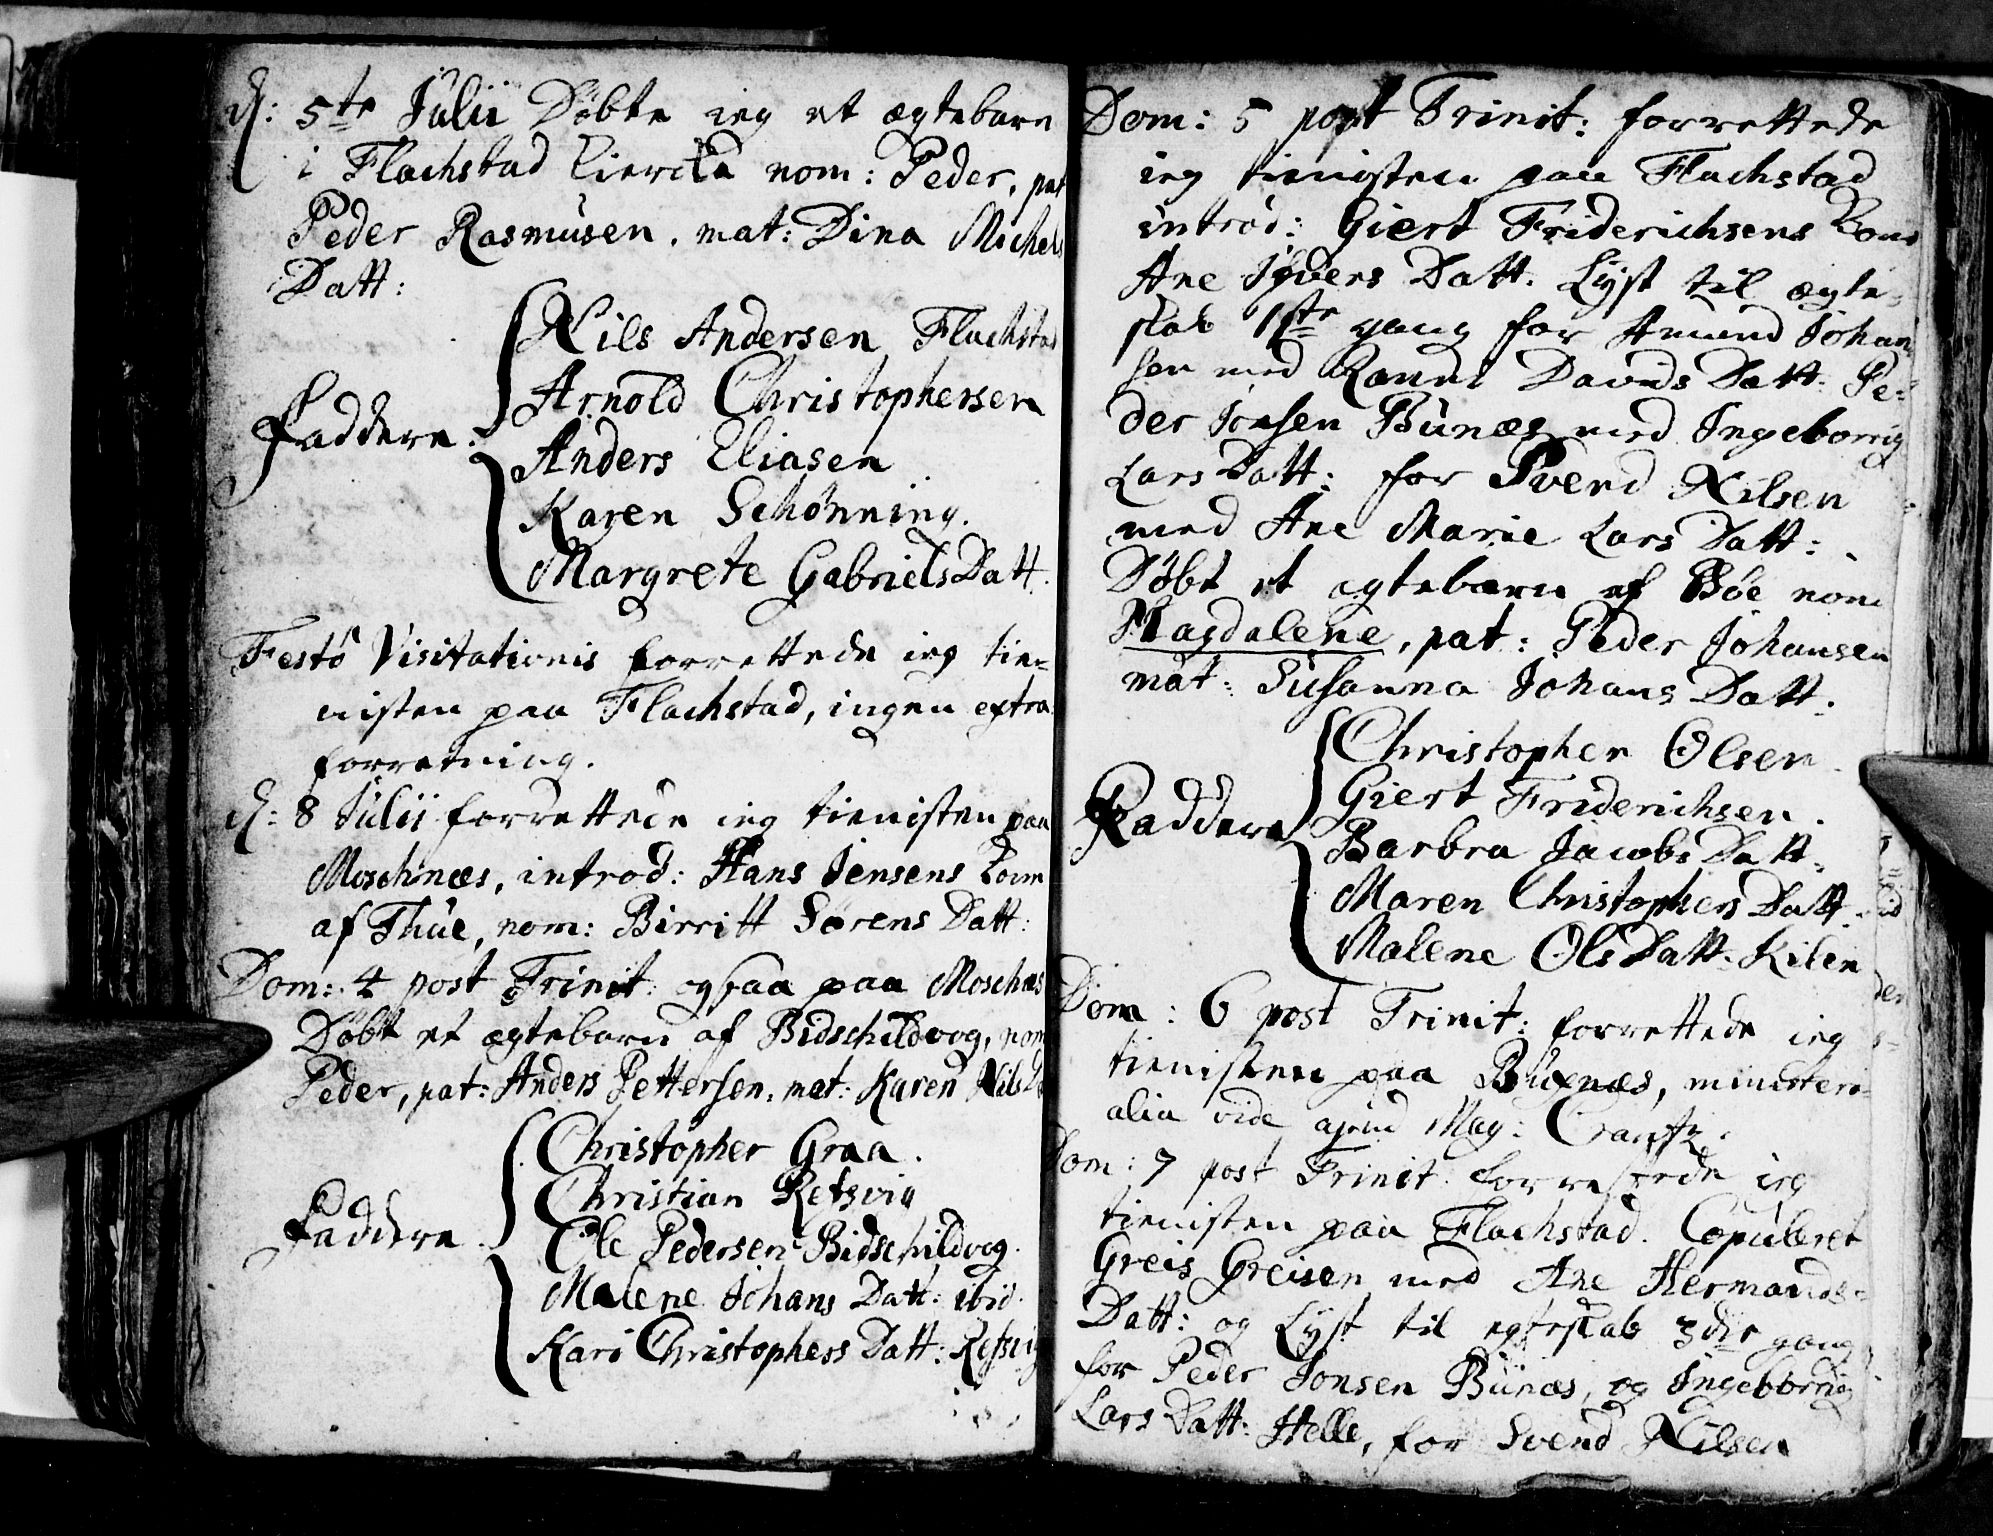 d: 5te Julii Døbte ieg et ægtebarn
i Flachstad kiercke nom: Peder, pat
Peder Rasmusen, mat: Dina Michels
Datt:
Nils Andersen Flachstad
Arnold Christophersen
Faddere:
Anders Eliasen
Karen Schønning.
Margrete Gabriels Datt.
Festo Visitationis forrettede ieg tie-
nisten paa Flachstad, ingen extra
forretning.
d: 8 Julii forrettede ieg tienisten paa
Moschnæs, introd: Hans Jensens Kone
af Thue, nom: Birritt Sørens Datt:
Dom: 4 post Trinit: ogsaa paa Moschnæs
Døbt et ægtebarn af Bidschildvog, nom
Peder, pat: Anders Pettersen, mat: Karen Nils D
Christopher Graa.
Christian Retsvig
Faddere.
Ole Pedersen Bidschildvog.
Malene Johans Datt: ibid.
Kari Christophers Datt: Refsvig
Dom: 5 post Trinit: forrettede
ieg tienisten paa Flachstad
introd: Giert Friderichsens Kone
Ane Ifvers Datt. Lyst til ægte-
skab 1ste gang for Amund Johan
sen med Ranni Davids Datt: Pe-
der Jonsen Bunæs med Ingeborrig
Lars Datt: for Svend Nilsen
med Ane Marie Lars Datt:
Døbt et ægtebarn af Bøe nom
Magdalene, pat: Peder Johansen
mat: Susanna Johans Datt.
Christopher Olsen
Giert Friderichsen.
Faddere
Barbra Jacobs Datt.
Maren Christophers Datt.
Malene Ols Datt. Kilen
Dom: 6 post Trinit: forrettede ieg
tienisten paa Buxnæs, ministeri-
alia vide apud Mag:
Dom: 7 post Trinit: forrettede ieg
tienisten paa Flachstad. Copuleret
Greis Greisen med Ane Hermands-
Datt: og Lyst til egteskab 3die gang
for Peder Jonsen Bunæs, og Ingeborrig
Lars Datt: Helle, for Svend Nilsen